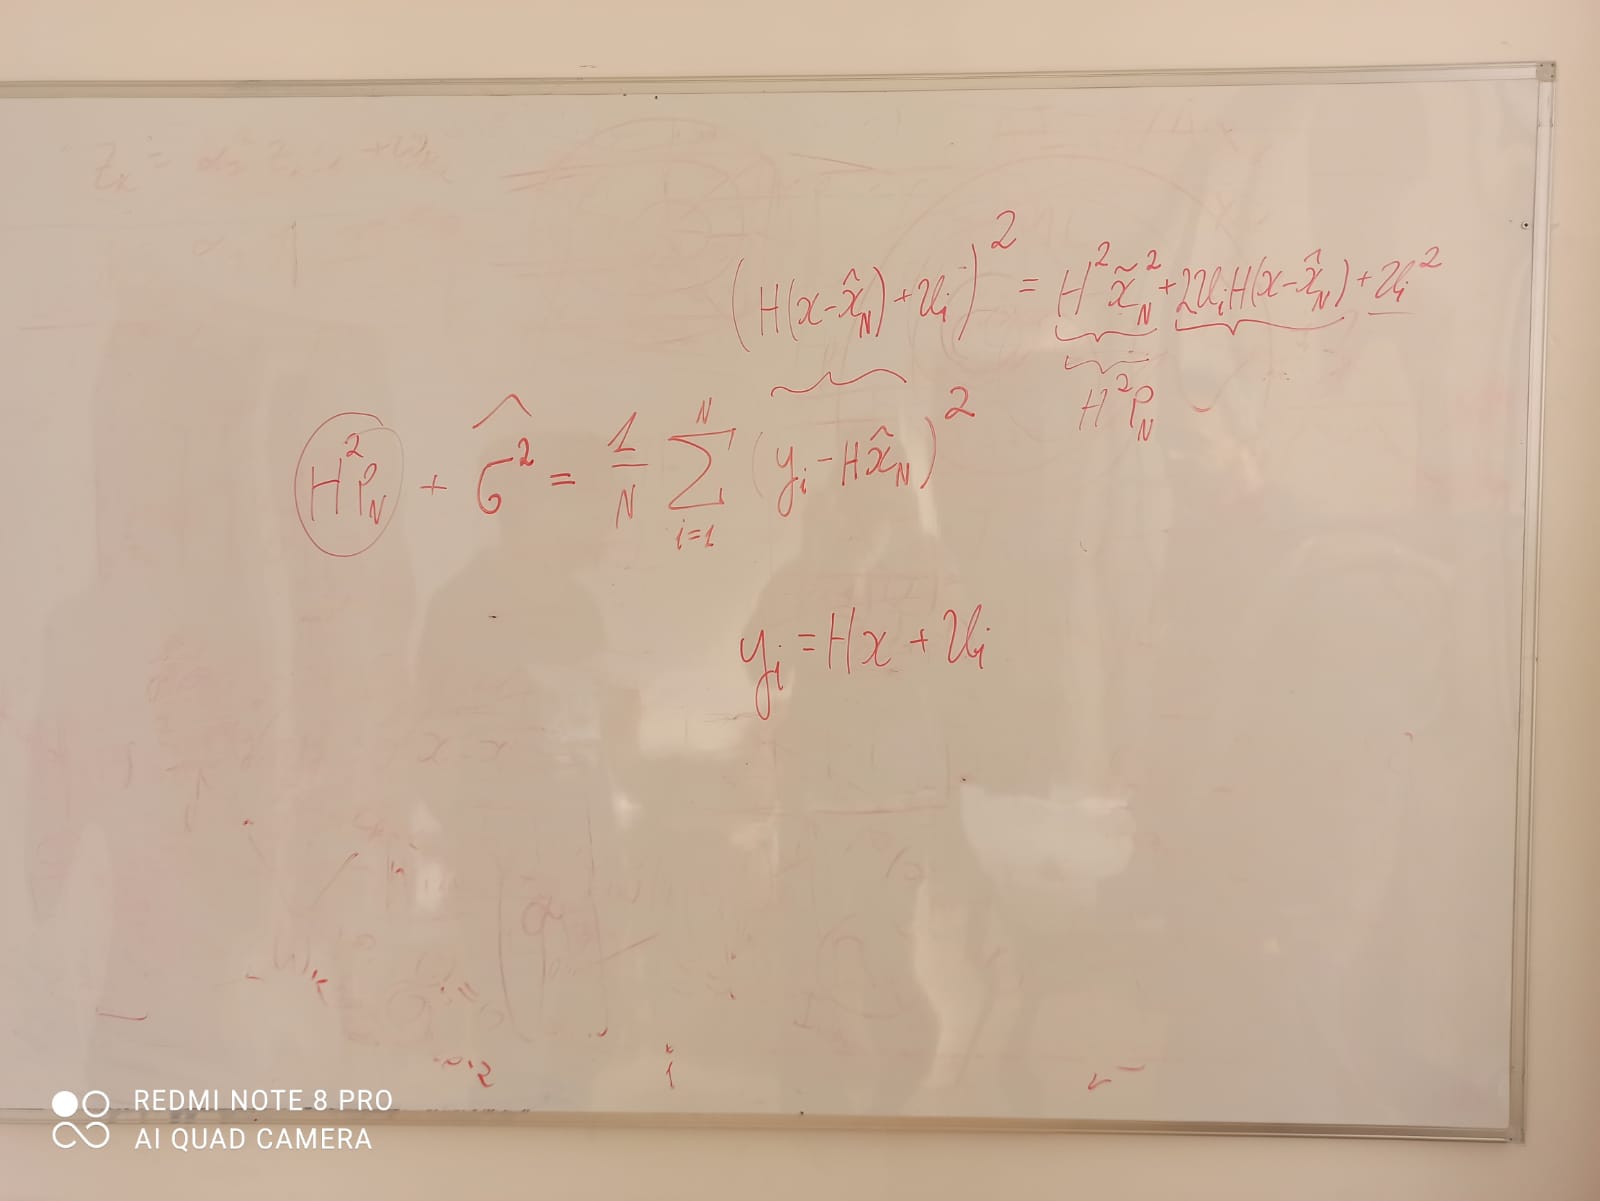 (H(x-x̂_N)+v_i)² = H²x̃_N² + 2v_iH(x-x̂_N) + v_i²
H²P_N
H²P_N + σ̂² = 1/N ∑_{i=1}^{N} (y_i - Hx̂_N)²
y_i = Hx + v_i
REDMI NOTE 8 PRO
AI QUAD CAMERA